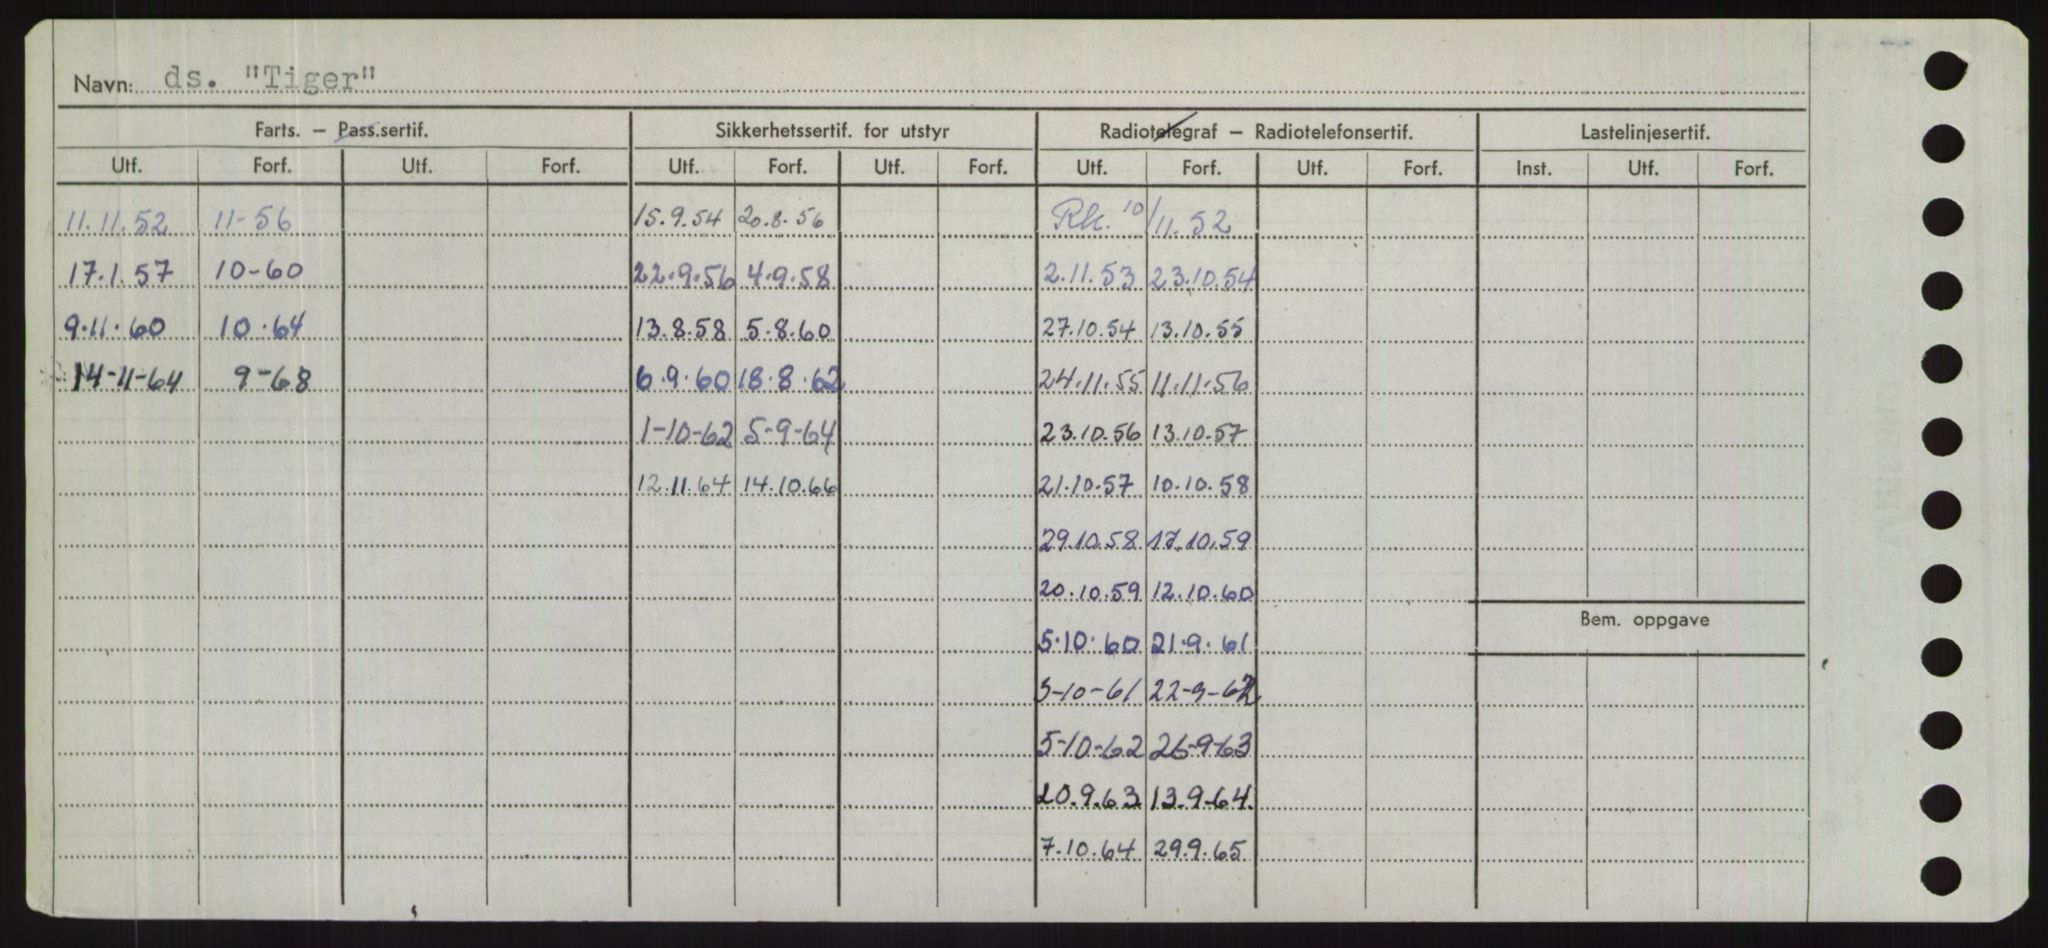 Navn: ds. "Tiger"
Farts. – Pass.sertif. Sikkerhetssertif. for utstyr Radiotelegraf – Radiotelefonsertif. Lastelinjesertif.
Utf. Forf. Utf. Forf. Utf. Forf. Utf. Forf. Utf. Forf. Utf. Forf. Inst. Utf. Forf.
11.11.52 11-56 15.9.54 20.8.56 Rk. 10/11.52
17.1.57 10-60 22.9.56 4.9.58 2.11.53 23.10.54
9.11.60 10.64 13.8.58 5.8.60 27.10.54 13.10.55
14-11-64 9-68 6.9.60 18.8.62 24.11.55 11.11.56
1-10-62 5-9-64 23.10.56 13.10.57
12.11.64 14.10.66 21.10.57 10.10.58
29.10.58 17.10.59
20.10.59 12.10.60
Bem. oppgave
5.10.60 21.9.61
5-10-61 22-9-62
5-10-62 26-9-63
20.9.63 13.9.64.
7.10.64 29.9.65